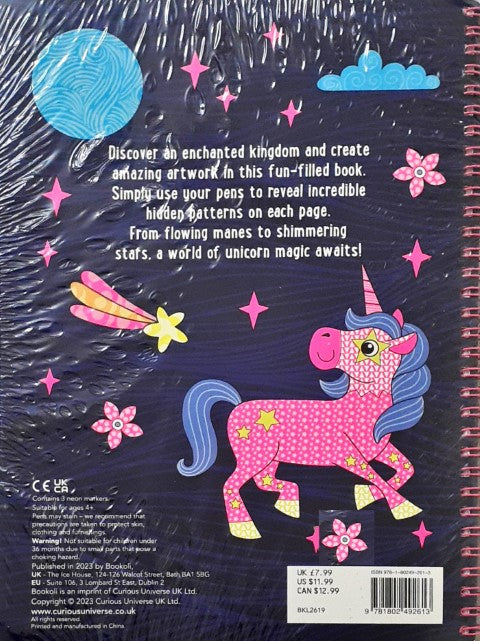 Discover an enchanted kingdom and create
amazing artwork in this fun-filled book.
Simply use your pens to reveal incredible
hidden patterns on each page.
From flowing manes to shimmering
stars, a world of unicorn magic awaits!
CE UK CA
Contains 3 neon markers.
Suitable for ages 4+
Pens may stain – we recommend that
precautions are taken to protect skin,
clothing and furnishings.
Warning! Not suitable for children under
36 months due to small parts that pose a
choking hazard.
Published in 2023 by Bookoli,
UK - The Ice House, 124-126 Walcot Street, Bath BA1 5BG
EU - Suite 106, 3 Lombard St East, Dublin 2
Bookoli is an imprint of Curious Universe UK Ltd.
Copyright © 2023 Curious Universe UK Ltd.
www.curiousuniverse.co.uk
All rights reserved.
Printed and manufactured in China.
UK £7.99
US $11.99
CAN $12.99
BKL2619
ISBN 978-1-80249-261-3
9 781802 492613